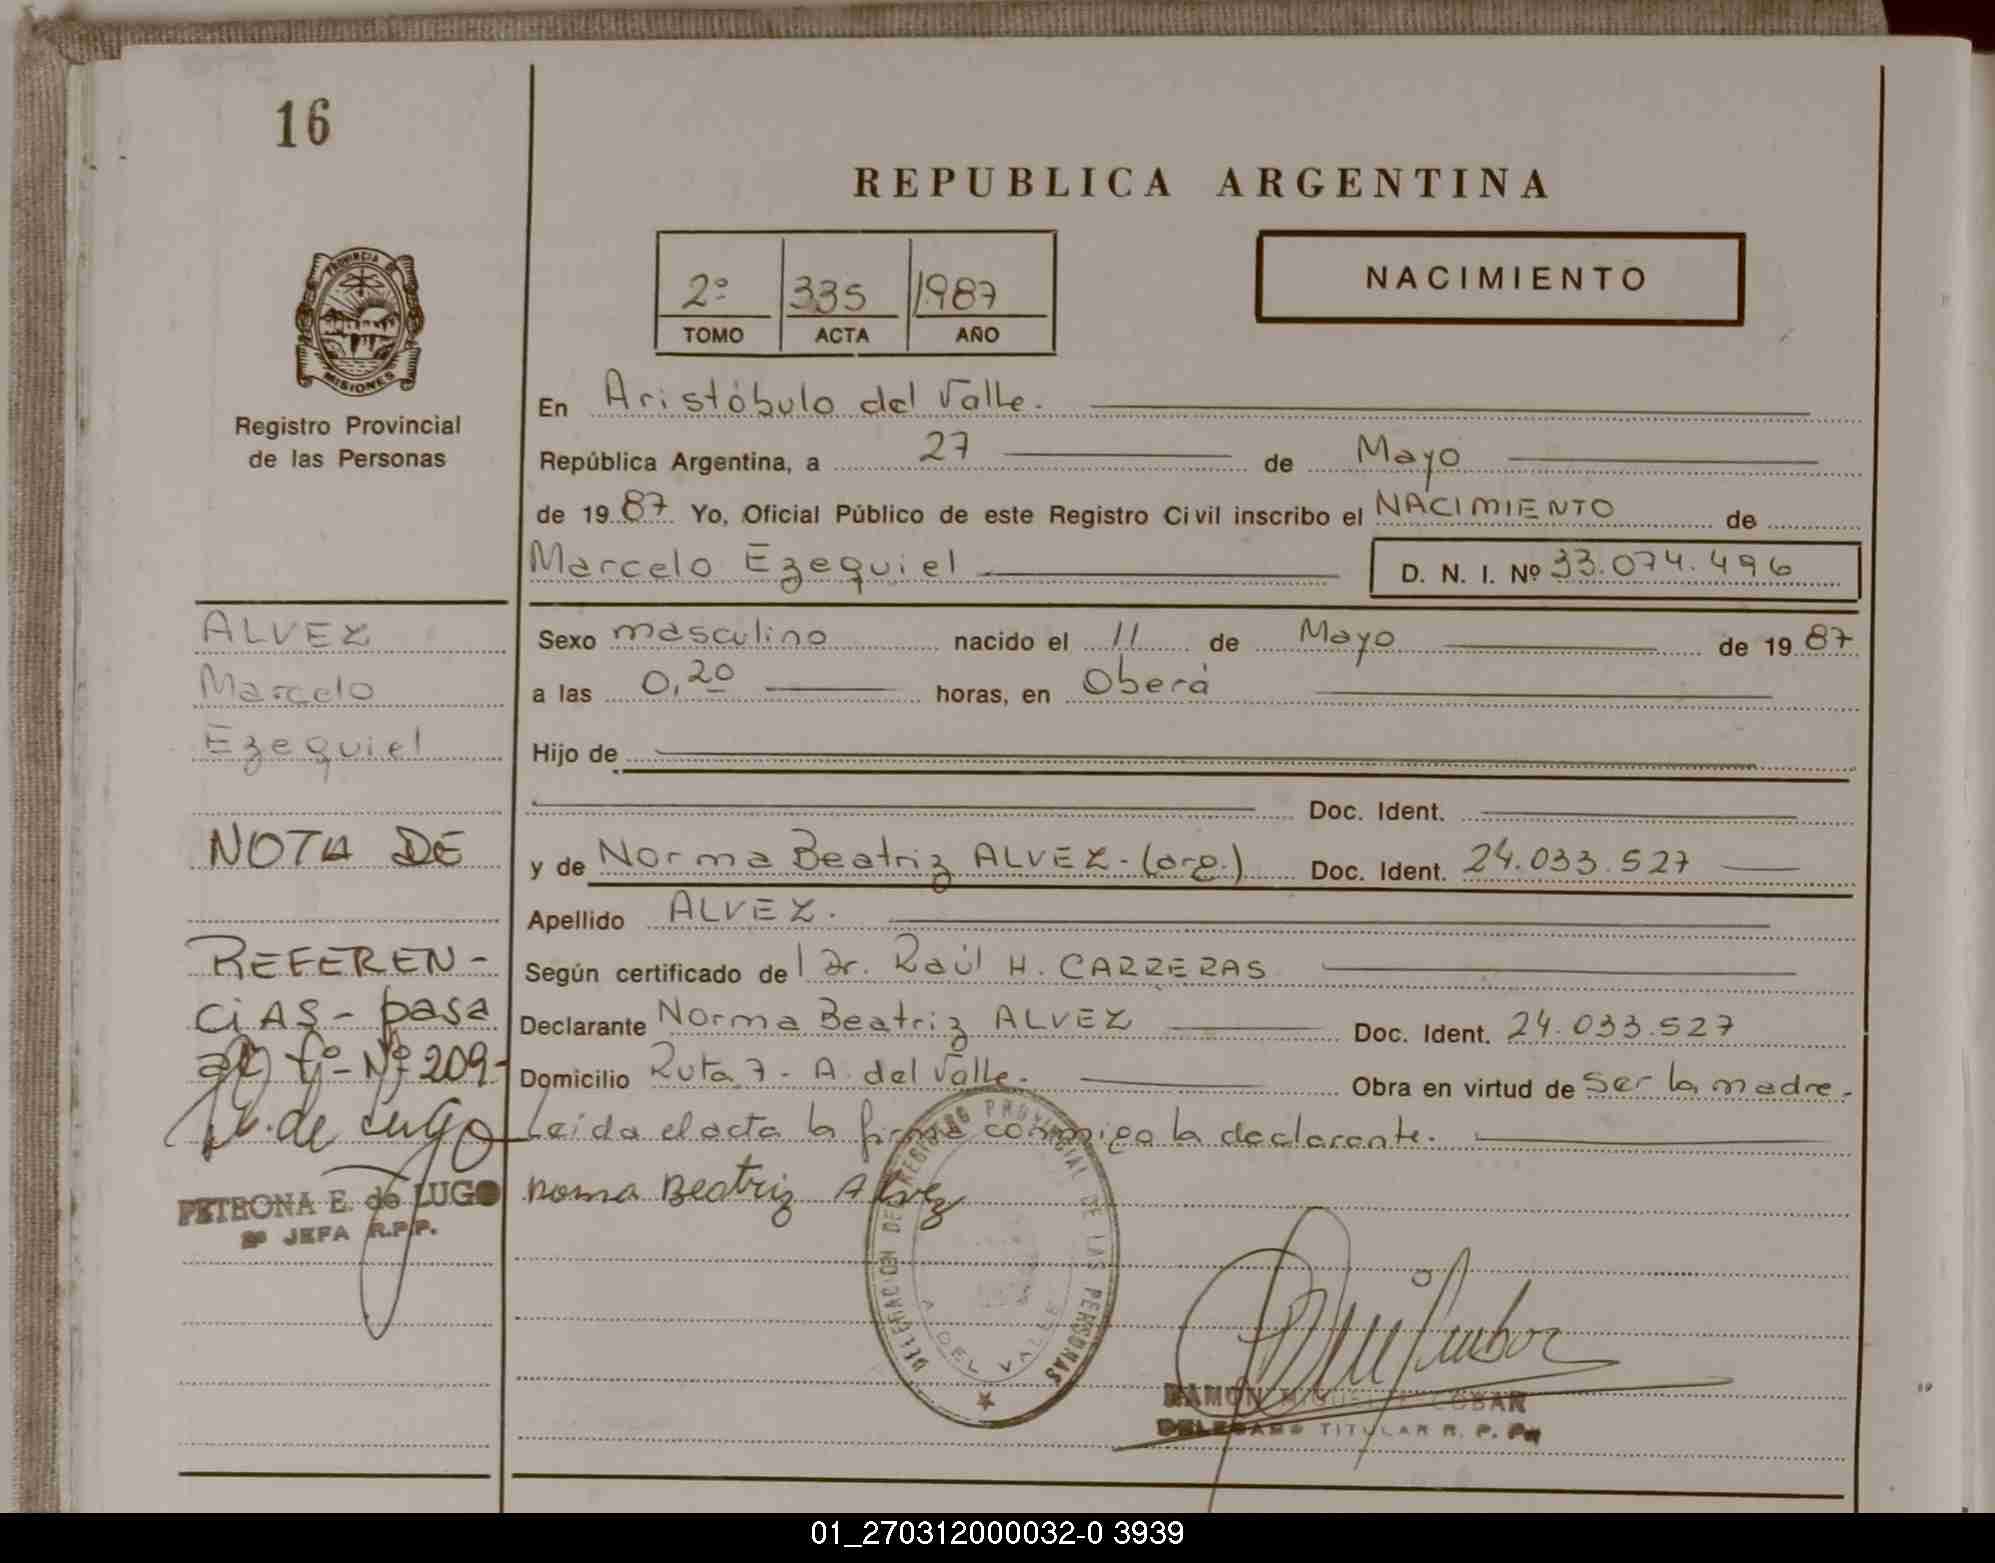 16
REPUBLICA ARGENTINA
PROVINCIA DE
MISIONES
Registro Provincial
de las Personas
2º 335 1987
TOMO ACTA AÑO
NACIMIENTO
En Aristóbulo del Valle.
República Argentina, a 27 de Mayo
de 1987 Yo, Oficial Público de este Registro Civil inscribo el NACIMIENTO de
Marcelo Ezequiel D. N. I. Nº 33.074.496
ALVEZ
Marcelo
Ezequiel
NOTA DE
REFEREN-
CIAS - pasa
al fº - Nº 209-
PETRONA E. de LUGO
2º JEFA R.P.P.
Sexo masculino nacido el 11 de Mayo de 1987
a las 0,20 horas, en Oberá
Hijo de
Doc. Ident.
y de Norma Beatriz ALVEZ - (arg.) Doc. Ident. 24.033.527
Apellido ALVEZ.
Según certificado del Dr. Raúl H. CARRERAS
Declarante Norma Beatriz ALVEZ Doc. Ident. 24.033.527
Domicilio Ruta 7 - A. del Valle. Obra en virtud de ser la madre.
Leída el acta la firma conmigo la declarante.
Norma Beatriz Alvez
DELEGACION DEL REGISTRO PROVINCIAL DE LAS PERSONAS
A. DEL VALLE
RAMON MIGUEL
DELEGADO TITULAR R. P. P.
01_270312000032-0 3939